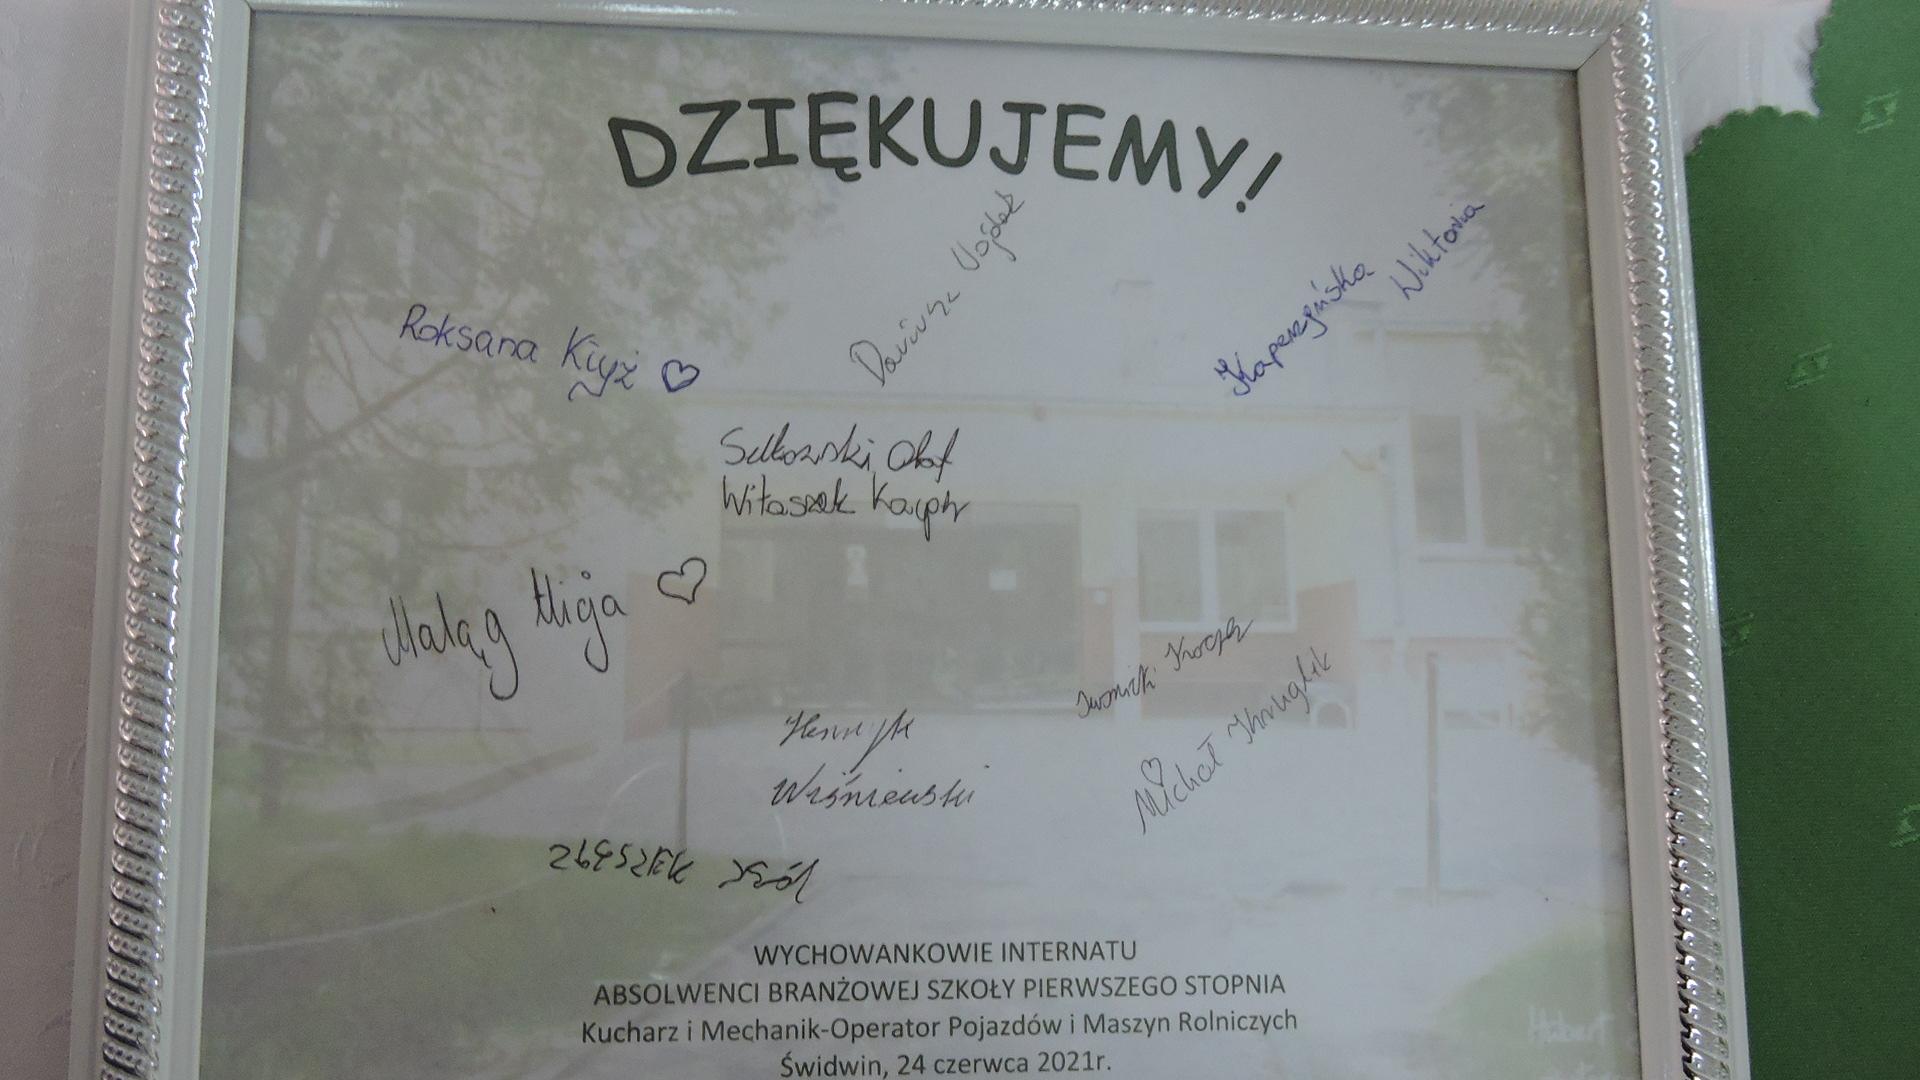 DZIĘKUJEMY!
Dariusz Wojdak
Wiktoria
Roksana Kryż
Kaperzyńska
Sulkowski Olaf
Witaszek Kacper
Maląg Migja
Iwanicki Kacper
Michał Kruglik
Henryk
Wiśniewski
Zbyszek Król
WYCHOWANKOWIE INTERNATU
ABSOLWENCI BRANŻOWEJ SZKOŁY PIERWSZEGO STOPNIA
Kucharz i Mechanik-Operator Pojazdów i Maszyn Rolniczych
Świdwin, 24 czerwca 2021r.
Hubert